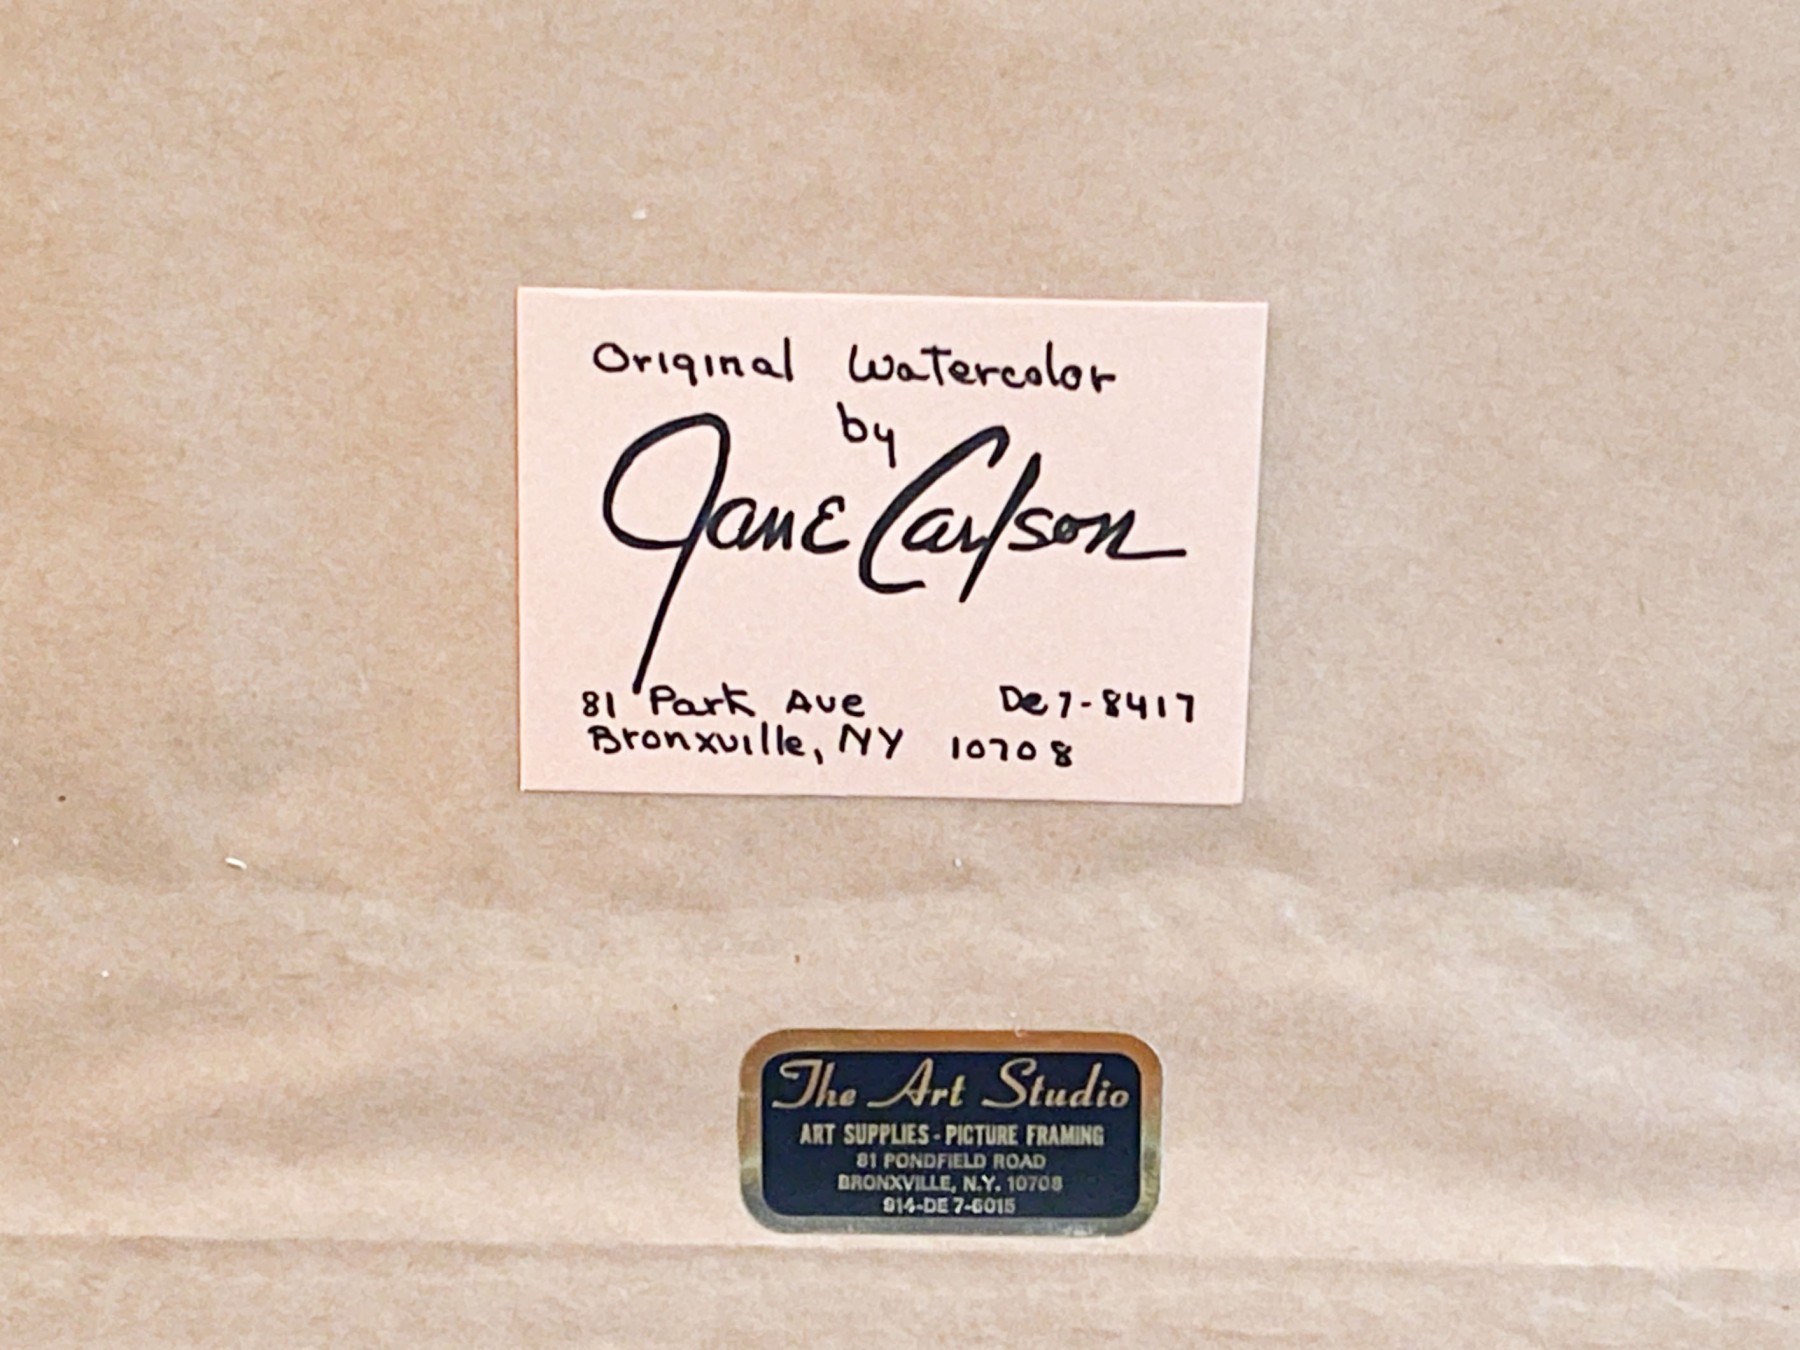 Original Watercolor
by
Jane Carlson
81 Park Ave De 7-8417
Bronxville, NY 10708
The Art Studio
ART SUPPLIES - PICTURE FRAMING
81 PONDFIELD ROAD
BRONXVILLE, N.Y. 10708
914-DE 7-6015